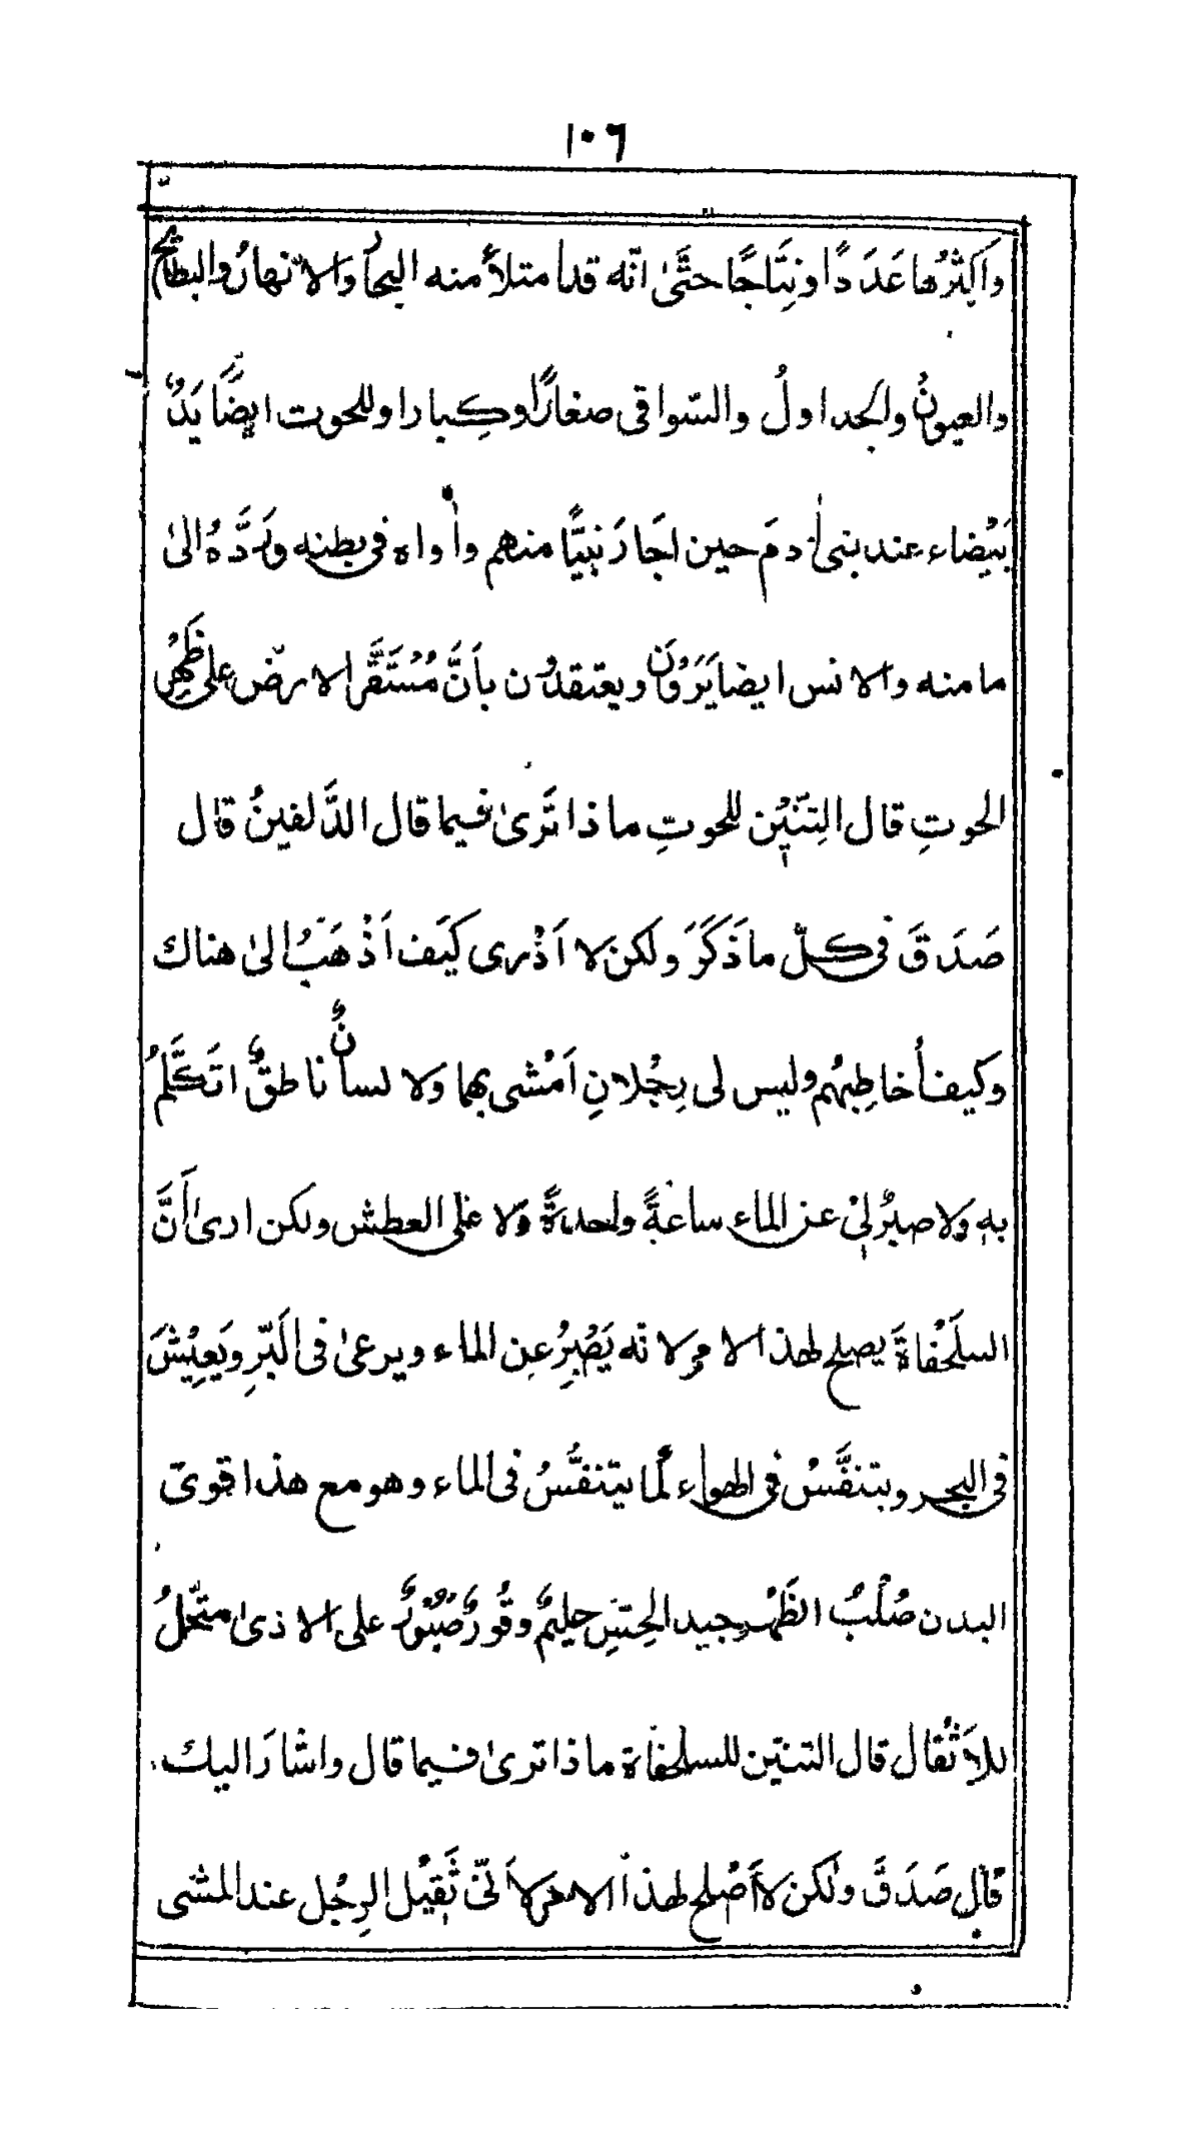 ١٠٦
واكثرُها عَدَدًا ونِتَاجًا حتَّىٰ انّه قد امتلأ منه البحارُ والانهارُ والبطائح
والعيونُ والجداولُ والسّواقى صغارًا وكِبارا وللحوت ايضًا يَدٌ
بَيْضاء عند بنى اٰدمَ حين اجَارَ نبِيًّا منهم واٰواه فى بطنه ورَدَّهُ الىٰ
مامنه والانس ايضا يَرَوْنَ ويعتقدُون بأَنَّ مُسْتَقَرَّ الارض على ظَهْرِ
الحوتِ قال التِنّيْن للحوتِ ماذا تَرىٰ فيما قال الدَّلفينُ قال
صَدَقَ فى كلّ ما ذَكَرَ ولكن لا اَدْرى كيَف اَذْهَبُ الىٰ هناك
وكيف أخاطِبهُم وليس لى رِجْلانِ اَمْشى بهما ولا لسانٌ ناطقٌ اتَكَلَّمُ
به ولا صبرُ لىْ عن الماء ساعةً واحدةً ولا على العطش ولكن ارىٰ أَنَّ
السلَحْفاةَ يصلح لهذا الامر لانّه يَصْبِرُ عن الماء ويرعىٰ فى البَرِّ ويَعِيْشَ
فى البحر ويتنفَّسُ فى الهواء كما يتنفَّسُ فى الماء وهو مع هذا قوىّ
البدن صُلْبُ الظَهْرِ جيد الحِسِّ حليمٌ وقُورٌ صَبُوْرٌ على الاذىٰ متحمّلُ
للأَثْقال قال التنّين للسلحفاة ماذا ترىٰ فيما قال واشارَ اليك
قال صَدَقَ ولكن لا أَصْلح لهذا الامر لأَنّى ثَقِيْل الرِجْل عند المشى